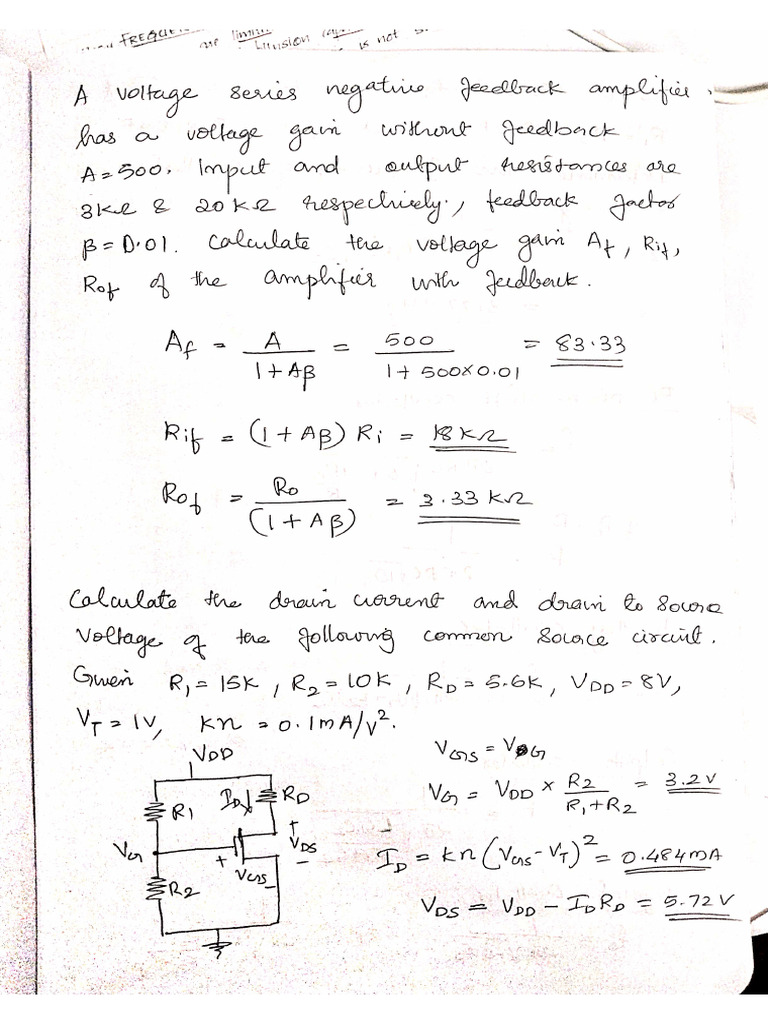 FREQUE
are limiti
is not
A voltage series negative feedback amplifier
has a voltage gain without feedback
A=500. Input and output resistances are
3kΩ & 20kΩ respectively., feedback factor
β=0.01. Calculate the voltage gain Af, Rif,
Rof of the amplifier with feedback.
Af = A / 1+Aβ = 500 / 1+500×0.01 = 83.33
Rif = (1+Aβ) Ri = 18KΩ
Rof = Ro / (1+Aβ) = 3.33 KΩ
Calculate the drain current and drain to source
voltage of the following common source circuit.
Given R1=15K, R2=10K, RD=5.6K, VDD=8V,
VT=1V, kn=0.1mA/V².
VDD
R1
ID
RD
VG
+
VGS
-
+
VDS
-
R2
VGS = VG
VG = VDD × R2 / R1+R2 = 3.2V
ID = kn (VGS-VT)² = 0.484mA
VDS = VDD - IDRD = 5.72V